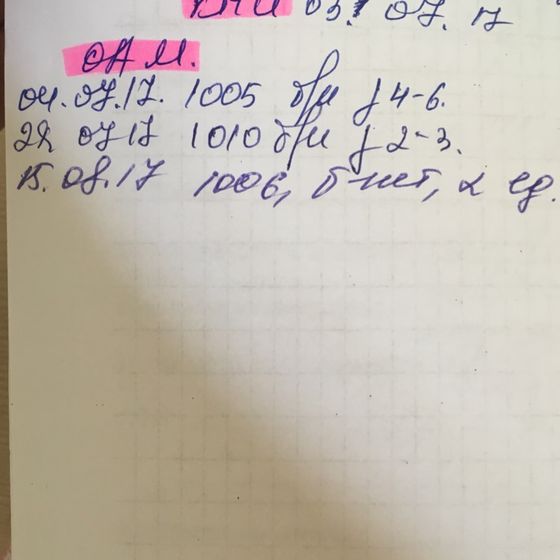 03. 07. 17
ОАМ.
04.07.17. 1005 б/м f 4-6.
22 07 17 1010 б/м f 2-3.
15.08.17 1006, б-нет, L ед.